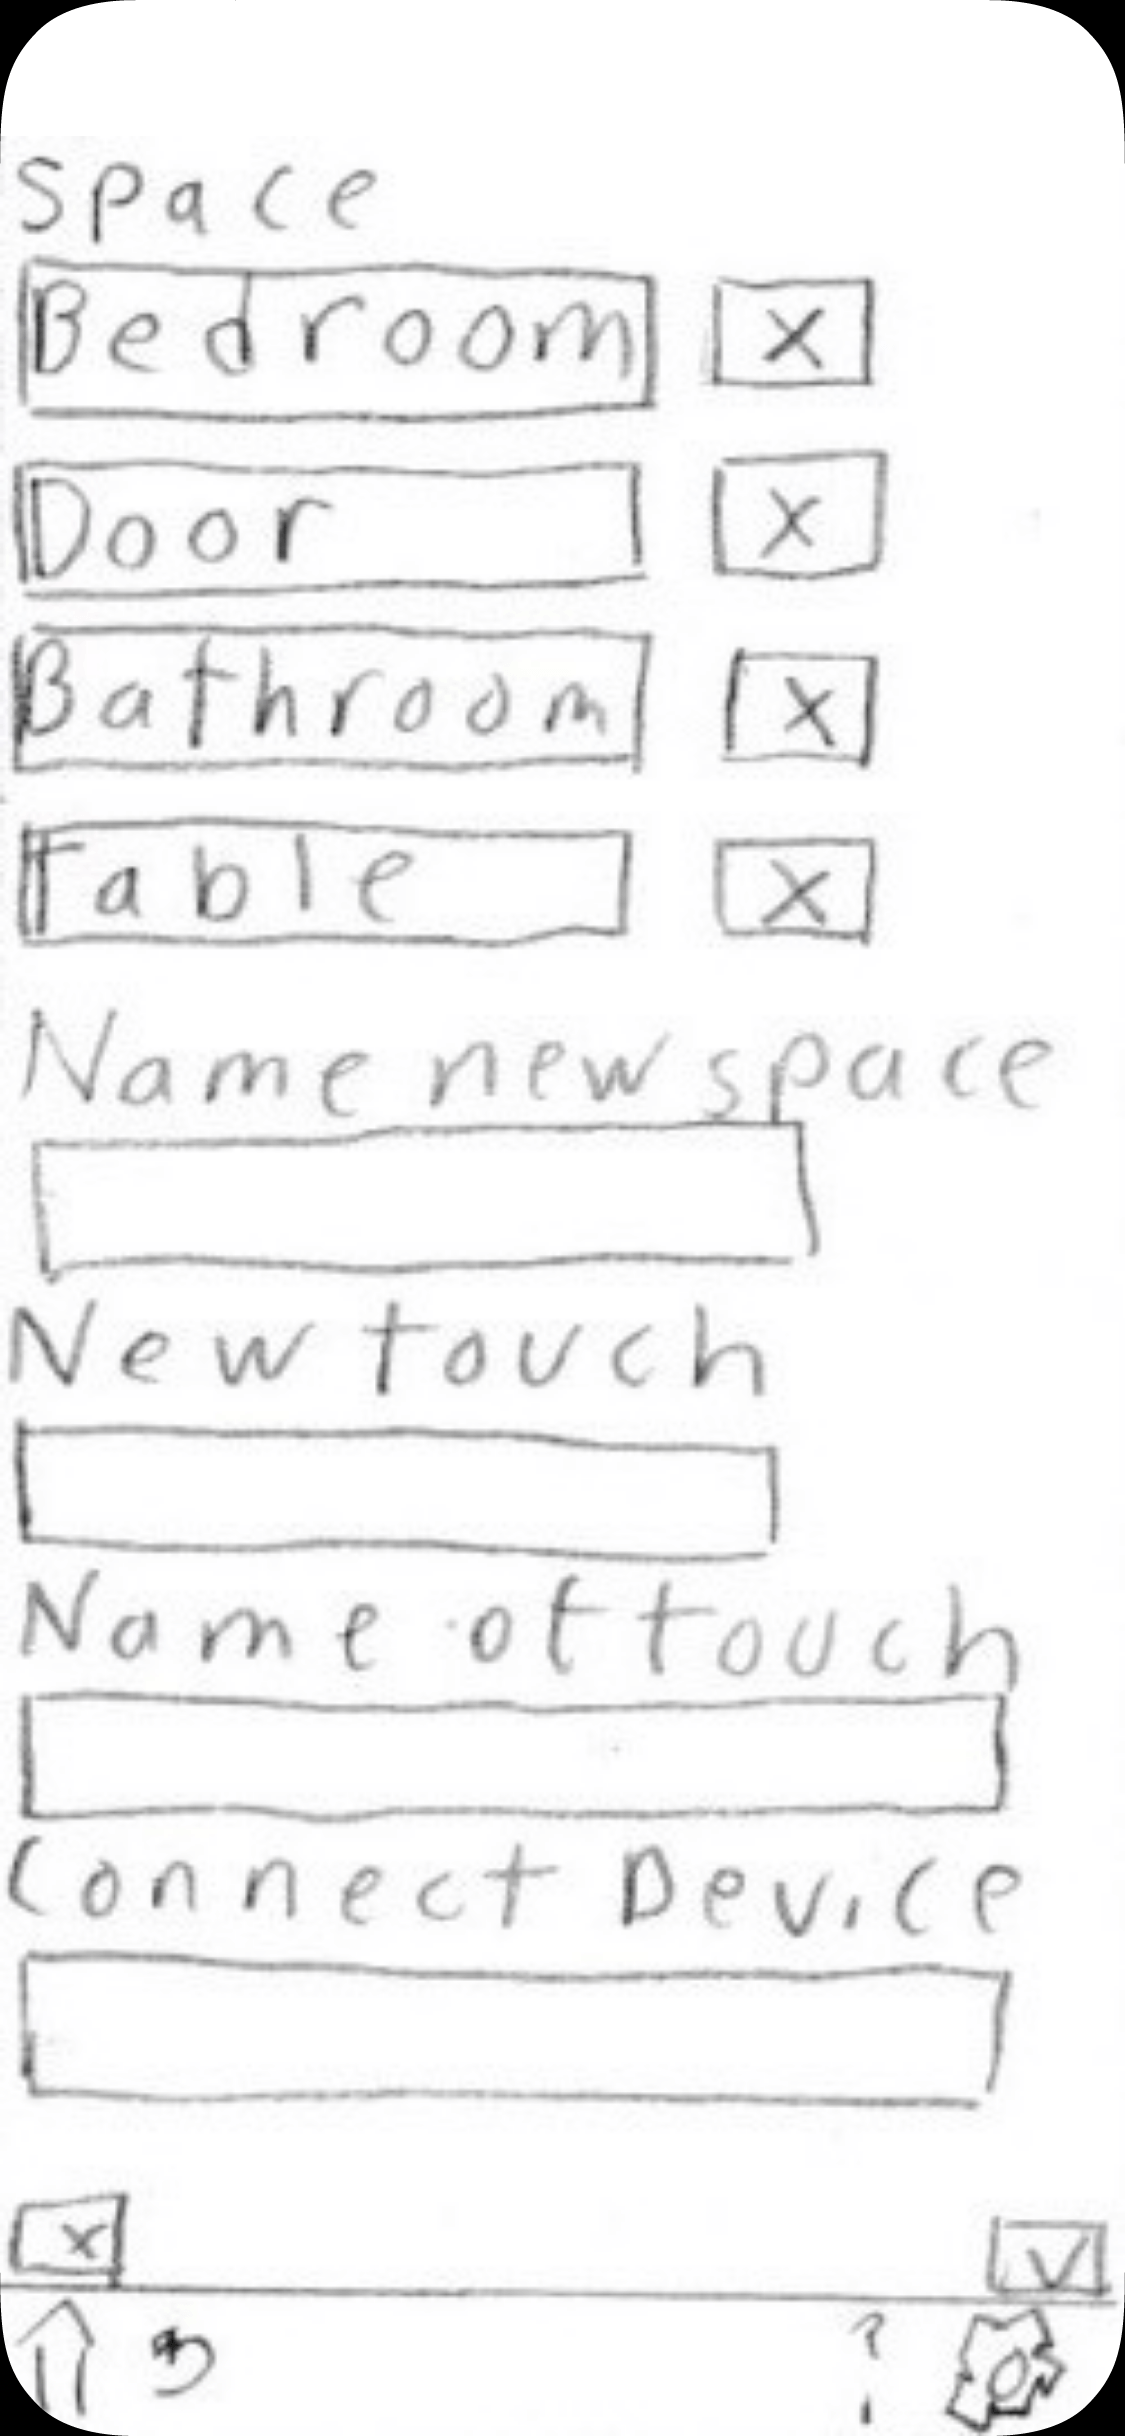 Space
Bedroom X
Door X
Bathroom X
Table X
Name new space
New touch
Name of touch
Connect Device
X V
?